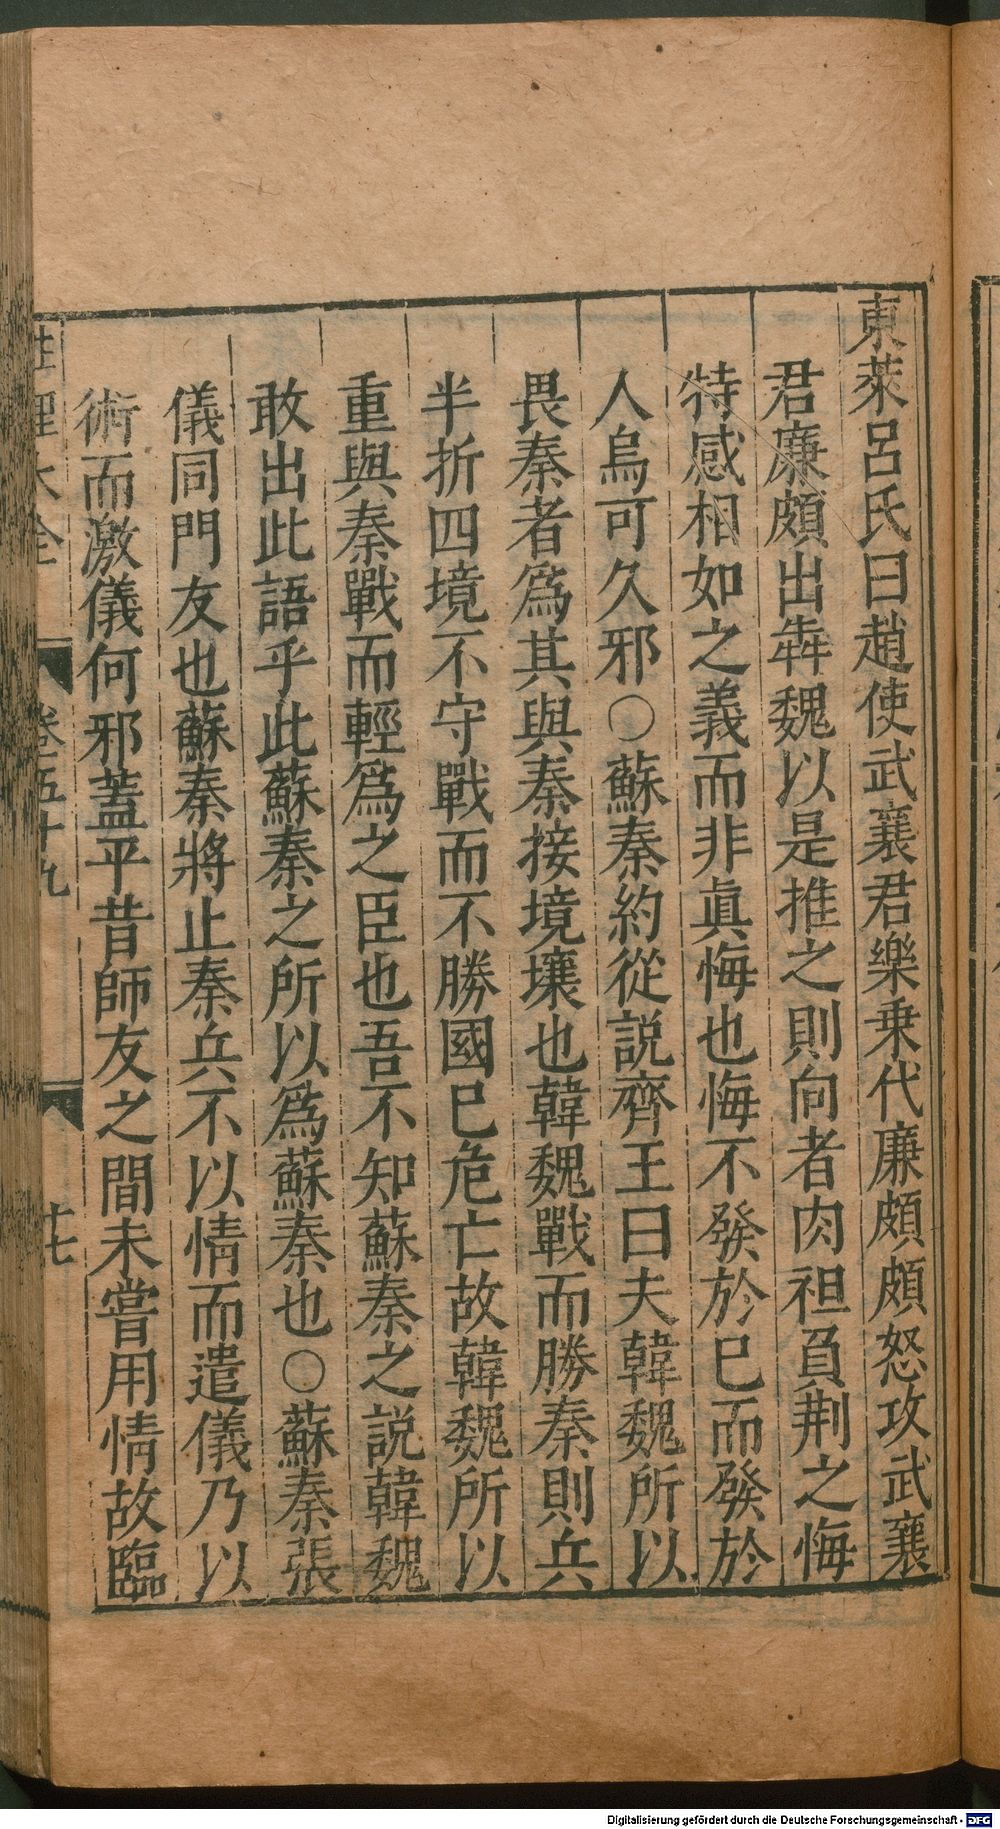 東萊呂氏曰趙使武襄君樂乗代廉頗頗怒攻武襄
君廉頗出犇魏以是推之則向者肉袒負荆之悔
特感相如之義而非眞悔也悔不發於巳而發於
人烏可久邪○蘇秦約從説齊王曰夫韓魏所以
畏秦者爲其與秦接境壤也韓魏戰而勝秦則兵
半折四境不守戰而不勝國巳危亡故韓魏所以
重與秦戰而輕爲之臣也吾不知蘇秦之説韓魏
敢出此語乎此蘇秦之所以爲蘇秦也○蘇秦張
儀同門友也蘇秦將止秦兵不以情而遣儀乃以
術而激儀何邪蓋平昔師友之間未嘗用情故臨
性理大全 卷五十九 十七
Digitalisierung gefördert durch die Deutsche Forschungsgemeinschaft - DFG